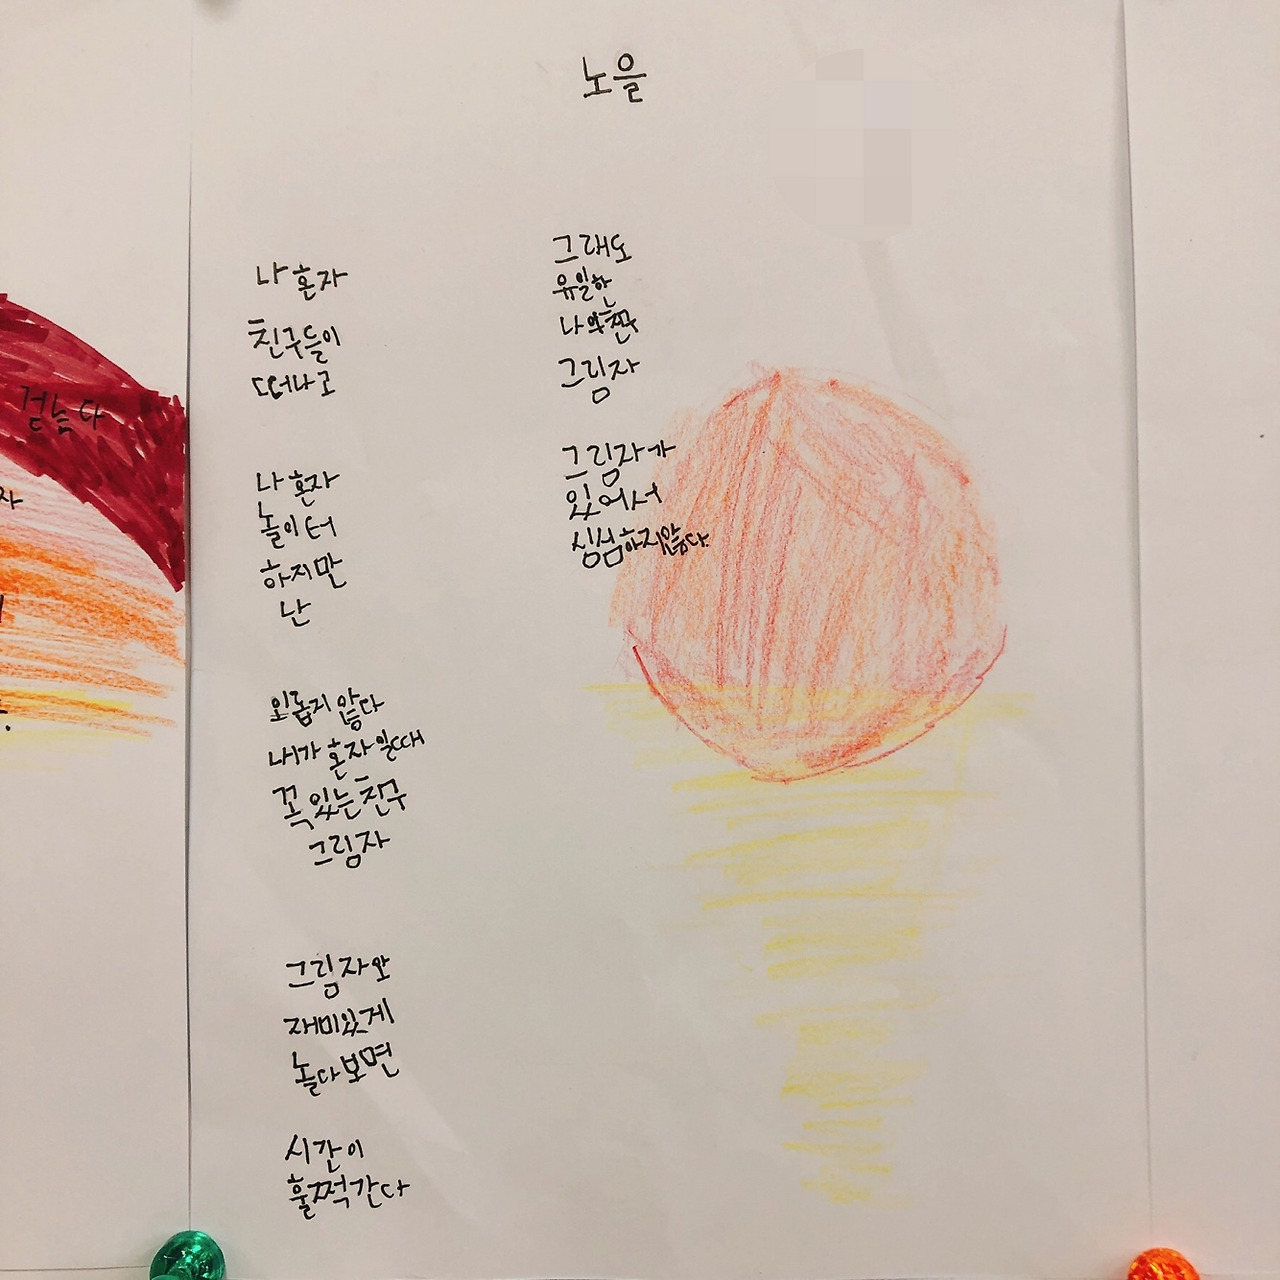 노을
나 혼자
친구들이
떠나고
나 혼자
놀이터
하지만
난
외롭지 않다
내가 혼자일때
꼭 있는 친구
그림자
그림자와
재미있게
놀다보면
시간이
훌쩍간다
그래도
유일한
나의 친구
그림자
그림자가
있어서
심심하지않다.
걷는다
자